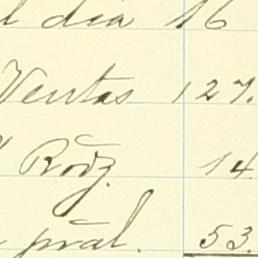 l dia 16
Ventas 127.
Rodz. 14
pral. 53.